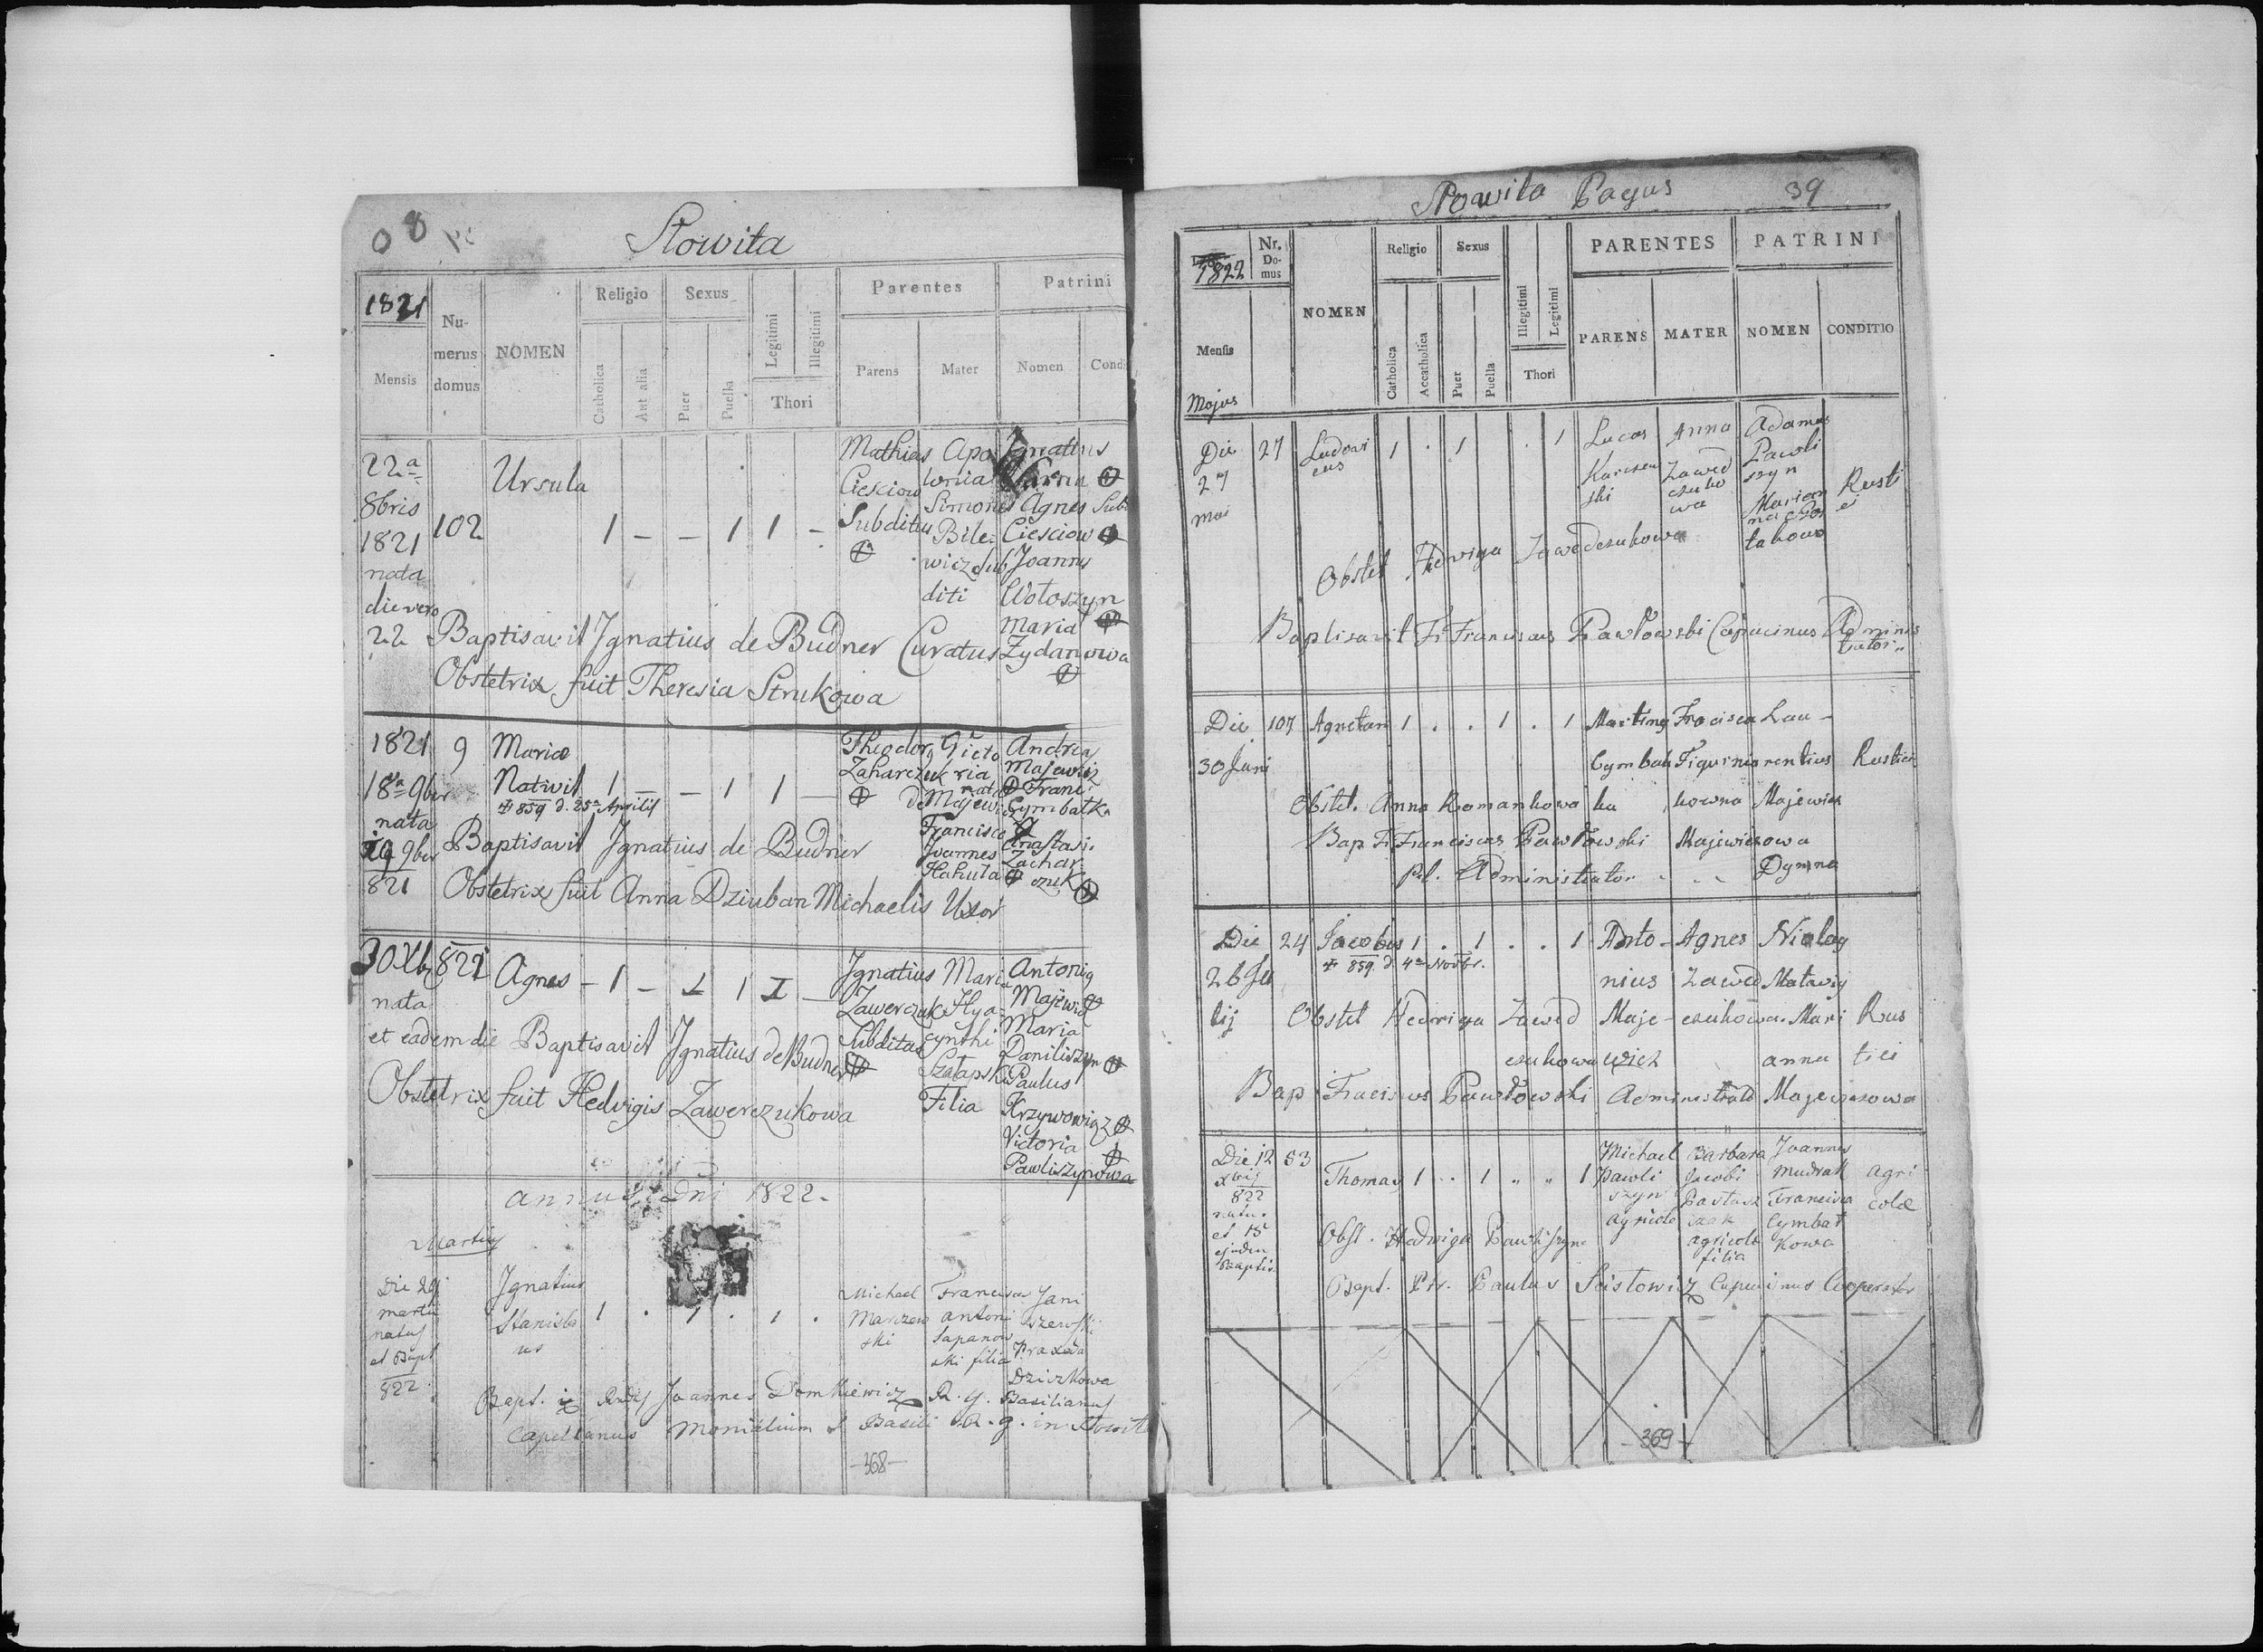 Słowita
1821
Mensis
Numerus domus
NOMEN
Religio
Catholica
Aut alia
Sexus
Puer
Puella
Legitimi
Illegitimi
Thori
Parentes
Parens
Mater
Patrini
Nomen
Condi
22a 8bris 1821 nata die vero 22
102
Ursula
1 – – 1 1 –
Mathias Cieściow Subditus
Apolonia Simonis Bilewicz Subditi
Ignatius
Agnes Cieściow
Joannes Wołoszyn
Maria Zydanowa
Sub
Baptisavit Ignatius de Budner Curatus
Obstetrix fuit Theresia Strukowa
1821 18a 9ber nata 19 9ber 821
9
Maria
Nativit
859 d. 25a Aprilis
1 – – 1 1 –
Theodor Zaharczuk
Victoria nata de Majewicz
Francisco
Joannes Hahuta
Andrea Majewicz
Franc. Cymbalka
Anastasi. Zacharczuk
Baptisavit Ignatius de Budner
Obstetrix fuit Anna Dziuban Michaelis Uxor
30 Xb 821
nata
Agnes – 1 – 1 1 1 –
Ignatius Zawerczuk Subditus
Maria Hyacynthi Szatapski Filia
Antonig Majewicz
Maria Daniliszyn
Paulus Krzywowicz
Victoria Pawliszynowa
et eadem die Baptisavit Ignatius de Budner
Obstetrix fuit Hedvigis Zawerczukowa
annus Dni 1822.
Martius
Die 29 martii natus et Bapt 822
Ignatius Stanislaus
1 . 1 . 1 .
Michael Marszewski
Francisca Antoni Sapanowski filia
Janiszewski
Praxeda Dziczkowa
Bapt. Joannes Domkiewicz R. g. Basilianus
Capellanus monialium S Basili R. g. in Słowita
-368-
Słowita Pagus 39
1822
Mensis
Majus
Nr. Domus
NOMEN
Religio
Catholica
Accatholica
Sexus
Puer
Puella
Illegitimi
Legitimi
Thori
PARENTES
PARENS
MATER
PATRINI
NOMEN
CONDITIO
Die 27 mai
27
Ludovicus
1 . 1 . 1
Lucas
Anna Zawedczukowa
Adamus Pawliszyn
Rustici
Obstet Hedviga Zawedczukowa
Baptisavit Fr Franciscus Pawłowski Capucinus Administrator
Die 30 Juni
107
Agnetam 1 . . 1 . 1
Martinus Cymbalka
Francisca Figurniakowna
Laurentius Majewicz
Majewiczowa
Dymna
Rustici
Obstet. Anna Romankowa
Bap Fr Franciscus Pawłowski
Administrator
Die 26 Julij
24
Jacobus 1 . 1 . . 1
859 d 4a Novbr.
Antonius Majewicz
Agnes Zawedczukowa
Nicolay Matawij
Marianna Majewiczowa
Rustici
Obstet Hedviga Zawedczukowa
Bap Franciscus Pawłowski Administrator
Die 12 822 natus et 15 ejusdem Baptis.
53
Thomas 1 . . 1 " " 1
Michael Pawliszyn agricola
Barbara Jacobi agricola filia
Joannes Mudrak
Francisca Cymbałkowa
agricolæ
Obst. Hedwiga Pawliszyn
Bapt. Pir. Paulus Scisłowicz Capucinus Cooperator
- 369 -